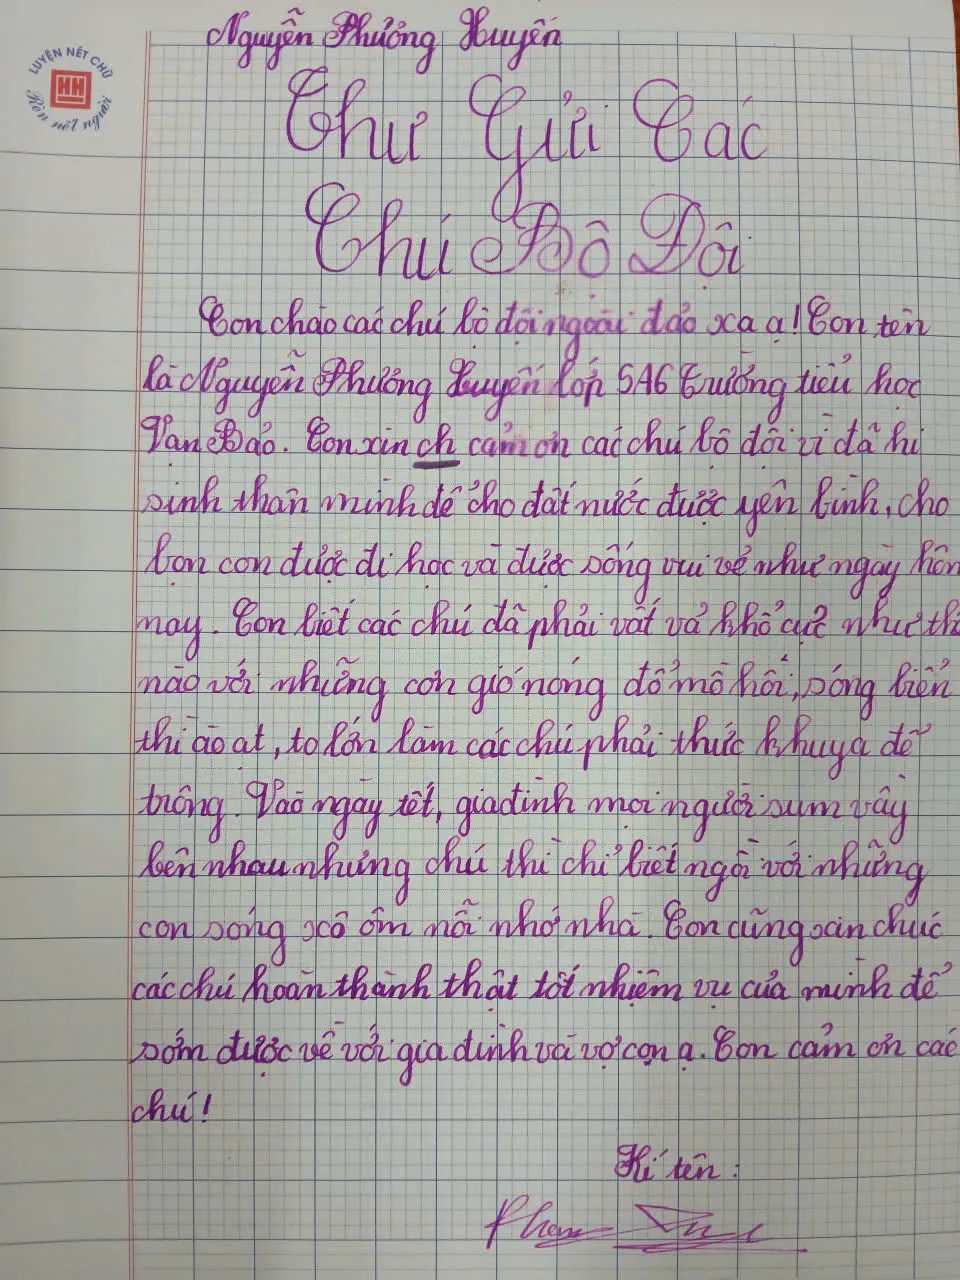 LUYỆN NÉT CHỮ
HH
Rèn nết người
Nguyễn Phương Huyền
Thư Gửi Các
Chú Bộ Đội
Con chào các chú bộ đội ngoài đảo xa ạ! Con tên
là Nguyễn Phương Huyền lớp 5A6 trường tiểu học
Vạn Bảo. Con xin ch cảm ơn các chú bộ đội vì đã hi
sinh thân mình để cho đất nước được yên bình, cho
bọn con được đi học và được sống vui vẻ như ngày hôm
nay. Con biết các chú đã phải vất vả khổ cực như thế
nào với những cơn gió nóng đổ mồ hôi, sóng biển
thì ào ạt, to lớn làm các chú phải thức khuya để
trông. Vào ngày tết, gia đình mọi người sum vầy
bên nhau nhưng chú thì chỉ biết ngồi với những
con sóng xô ôm nỗi nhớ nhà. Con cũng xin chúc
các chú hoàn thành thật tốt nhiệm vụ của mình để
sớm được về với gia đình và vợ con ạ. Con cảm ơn các
chú!
Kí tên: